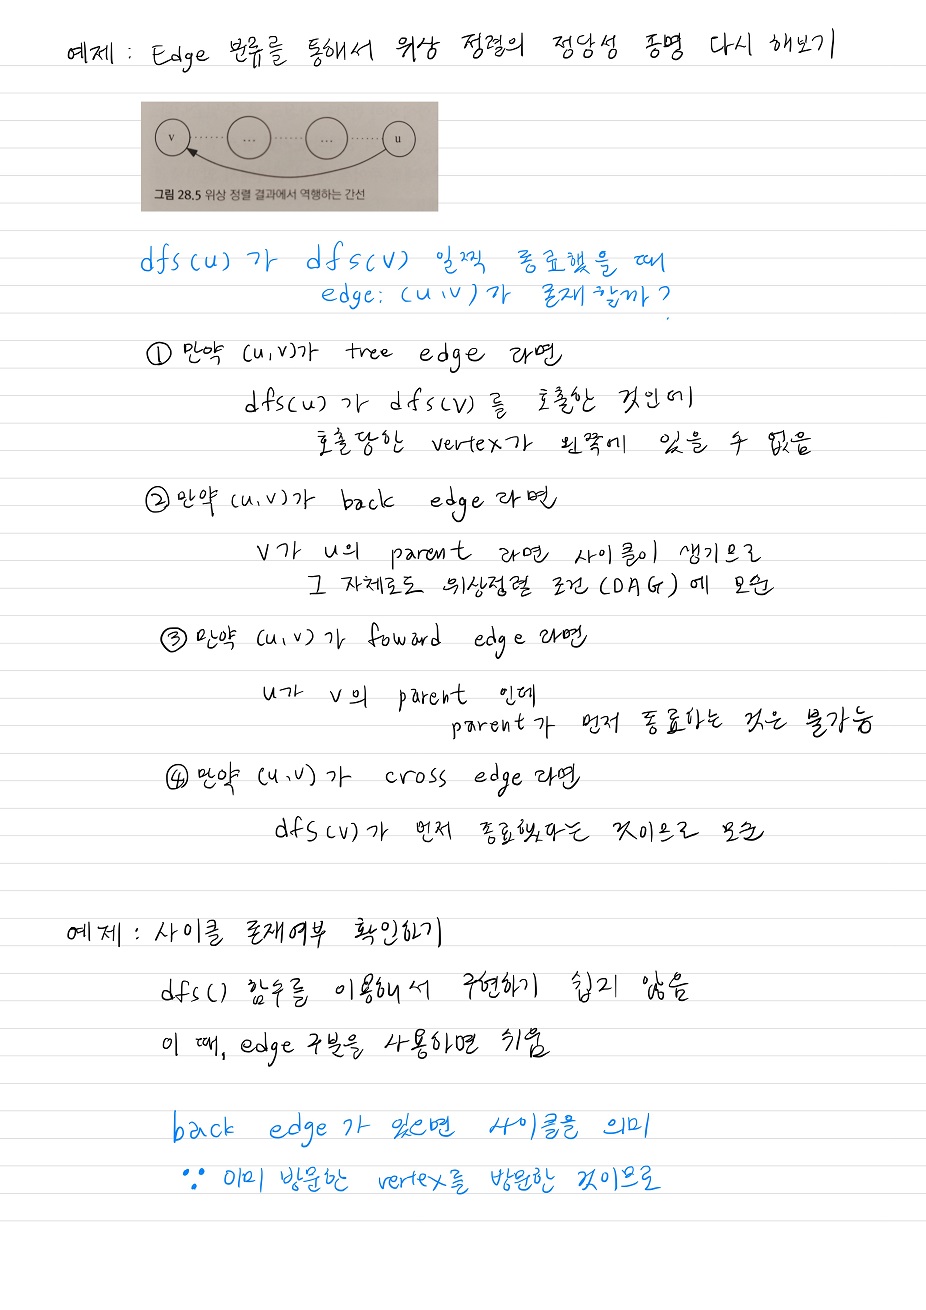 예제 : Edge 분류를 통해서 위상 정렬의 정당성 증명 다시 해보기
v ... ... u
그림 28.5 위상 정렬 결과에서 역행하는 간선
dfs(u) 가 dfs(v) 일찍 종료했을 때
edge: (u,v)가 존재할까?
① 만약 (u,v)가 tree edge 라면
dfs(u) 가 dfs(v) 를 호출한 것인데
호출당한 vertex가 왼쪽에 있을 수 없음
② 만약 (u,v)가 back edge 라면
v가 u의 parent 라면 사이클이 생기므로
그 자체로도 위상정렬 조건(DAG)에 모순
③ 만약 (u,v)가 foward edge 라면
u가 v의 parent 인데
parent가 먼저 종료하는 것은 불가능
④ 만약 (u,v)가 cross edge 라면
dfs(v)가 먼저 종료했다는 것이므로 모순
예제 : 사이클 존재여부 확인하기
dfs() 함수를 이용해서 구현하기 쉽지 않음
이 때, edge 구분을 사용하면 쉬움
back edge가 있으면 사이클을 의미
∵ 이미 방문한 vertex를 방문한 것이므로